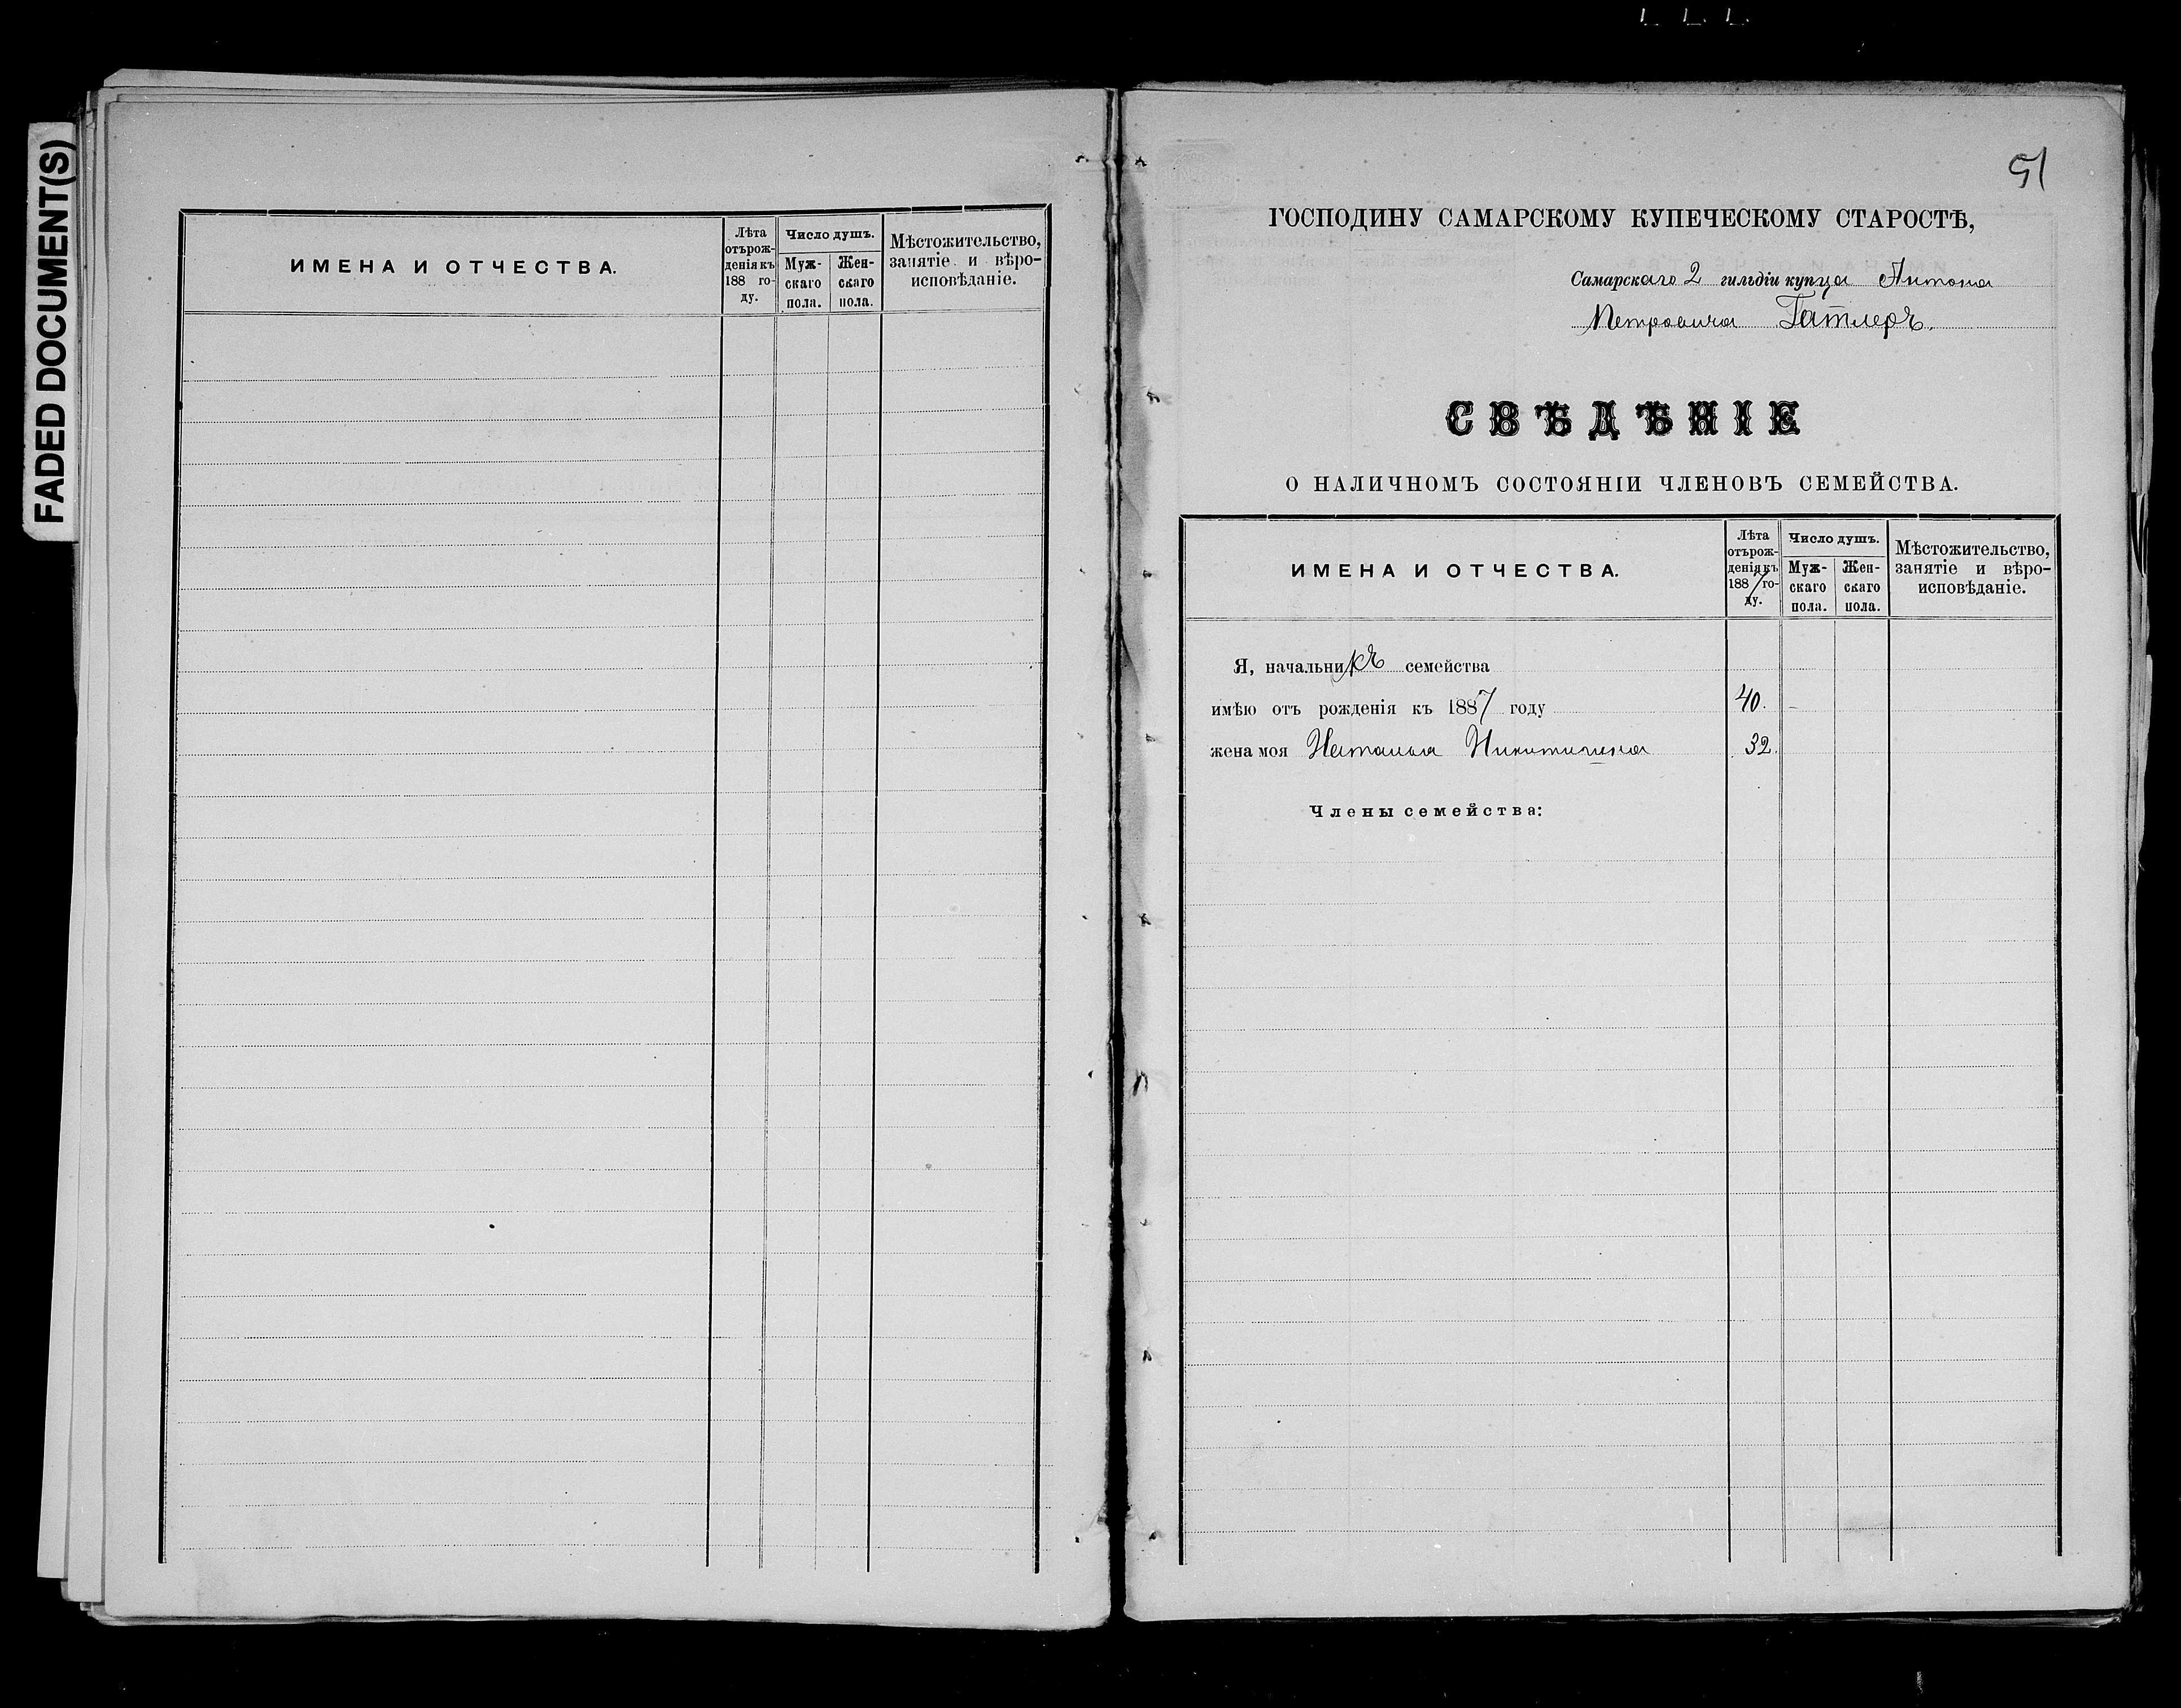 FADED DOCUMENT(S)
ИМЕНА И ОТЧЕСТВА.
Лѣта
отърож-
денія къ
188 го-
ду.
Число душъ.
Муж-
скаго
пола.
Жен-
скаго
пола.
Мѣстожительство,
занятіе и вѣро-
исповѣданіе.
51
ГОСПОДИНУ САМАРСКОМУ КУПЕЧЕСКОМУ СТАРОСТѢ,
Самарскаго 2 гильдіи купца Антона
Петровича Гатлеръ.
СВѢДѢНІЕ
О НАЛИЧНОМЪ СОСТОЯНІИ ЧЛЕНОВЪ СЕМЕЙСТВА.
ИМЕНА И ОТЧЕСТВА.
Лѣта
отърож-
денія къ
1887 го-
ду.
Число душъ.
Муж-
скаго
пола.
Жен-
скаго
пола.
Мѣстожительство,
занятіе и вѣро-
исповѣданіе.
Я, начальникъ семейства
имѣю отъ рожденія къ 1887 году 40.
жена моя Наталья Никитична 32.
Члены семейства: